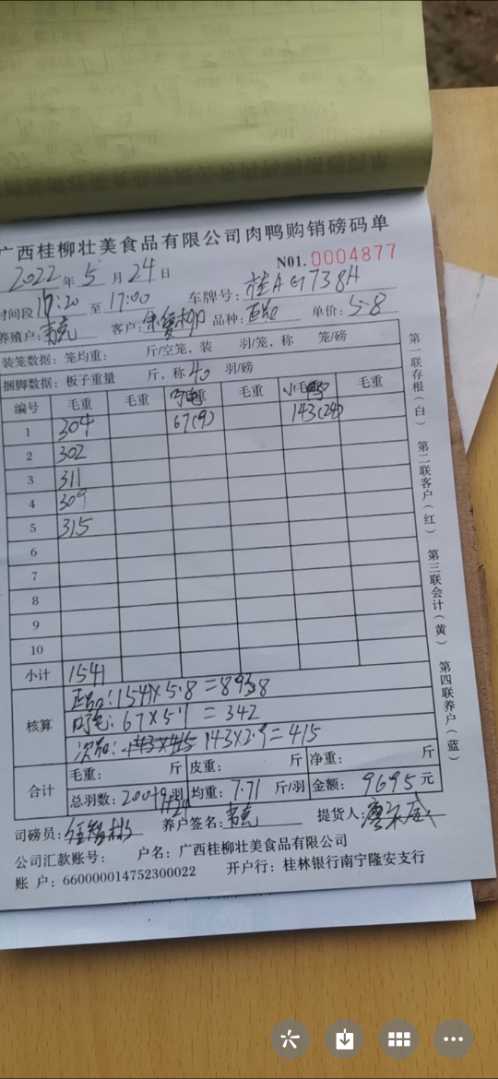 广西桂柳壮美食品有限公司肉鸭购销磅码单
2022年5月24日 N01.0004877
时间段16:20至17:00 车牌号:桂AG738H
养殖户:韦克 客户: 品种:正品 单价:5.8
装笼数据:笼均重: 斤/空笼,装 羽/笼,称 笼/磅
捆脚数据:板子重量 斤,称40羽/磅
编号 毛重 毛重 重 毛重 小毛鸭 毛重
1 304 67(9) 143(24)
2 302
3 311
4 309
5 315
6
7
8
9
10
小计 1541
核算 正品:154X5.8=8938
67X5.1=342
次品:143X415 143X2.9=415
合计 毛重: 斤 皮重: 斤 净重: 斤
总羽数:200+9羽 均重:7.71斤/羽 金额:9695元
+24
司磅员: 养户签名:韦克 提货人:
公司汇款账号: 户名:广西桂柳壮美食品有限公司
账 户:660000014752300022 开户行:桂林银行南宁隆安支行
第一联存根(白) 第二联客户(红) 第三联会计(黄) 第四联养户(蓝)